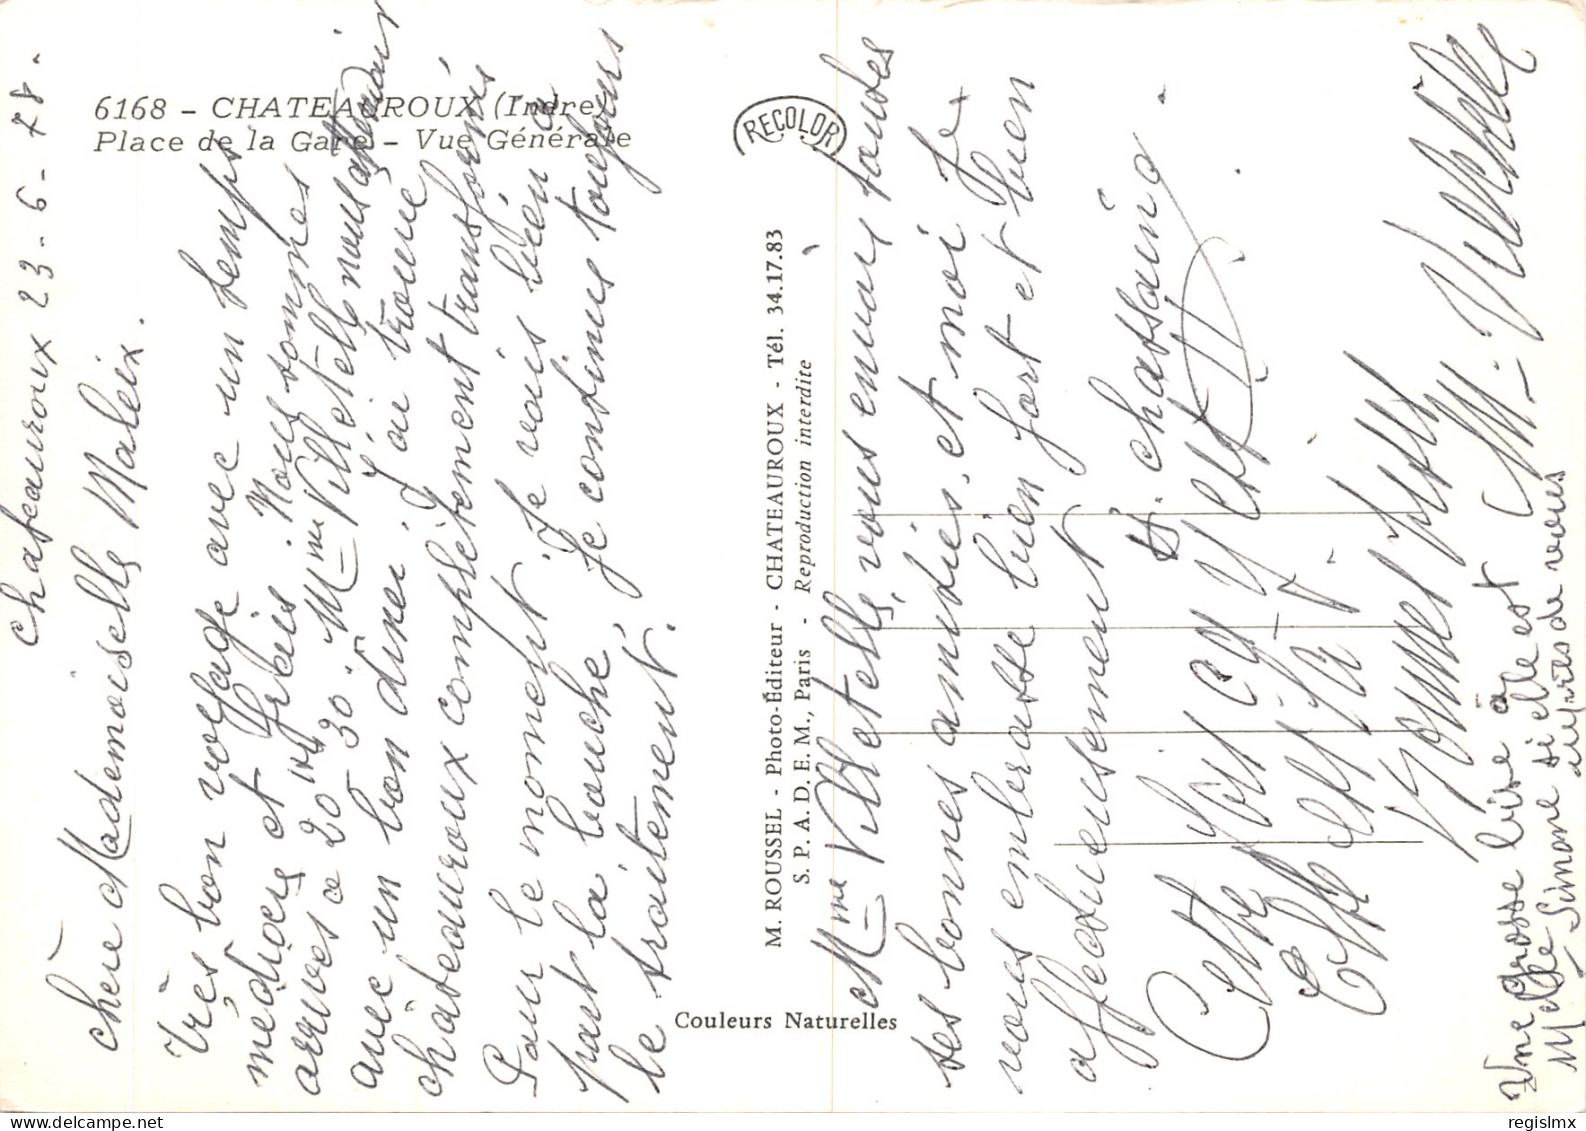 6168 - CHATEAUROUX (Indre)
Place de la Gare - Vue Générale
RECOLOR
M. ROUSSEL - Photo-Éditeur - CHATEAUROUX - Tél. 34.17.83
S. P. A. D. E. M., Paris - Reproduction interdite
Couleurs Naturelles
Chateauroux 23-6-78-
Chère Mademoiselle Maleix.
Très bon voyage avec un temps
médiocre et frais. Nous sommes
arrivés a 20 30. Mme Villetelle nous attendait
avec un bon diner. J'ai trouvé
châteauroux complètement transformé
Pour le moment je vais bien a
part la bouche, je continue toujours
le traitement.
Mme Villetelle, vous envoie toutes
ses bonnes amitiés, et moi je
vous embrasse bien fort et bien
affectueusement
H. chassaing
M. Villetelle
Une grosse bise à
Melle Simone si elle est
auprès de vous
regislmx